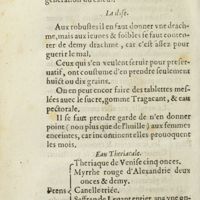 La dose.
Aux robustes il en faut donner vne drach-
me, mais aux ieunes & foibles se faut conten-
ter de demy drachme, car c'est assez pour
guerir le mal.
Ceux qui s'en veulent seruir pour preser-
uatif, ont coustume d'en prendre seulement
huict ou dix grains.
On en peut encor faire des tablettes mes-
lées auec le sucre, gomme Tragacant, & eau
pectorale.
Il se faut prendre garde de n'en donner
point (non plus que de l'huille) aux femmes
enceintes, car incontinent elles mourroient.
Eau Theriacale.
Theriaque de Venise cinq onces.
Myrrhe rouge d'Alexandrie deux
onces & demy.
Prens Canelle triée.